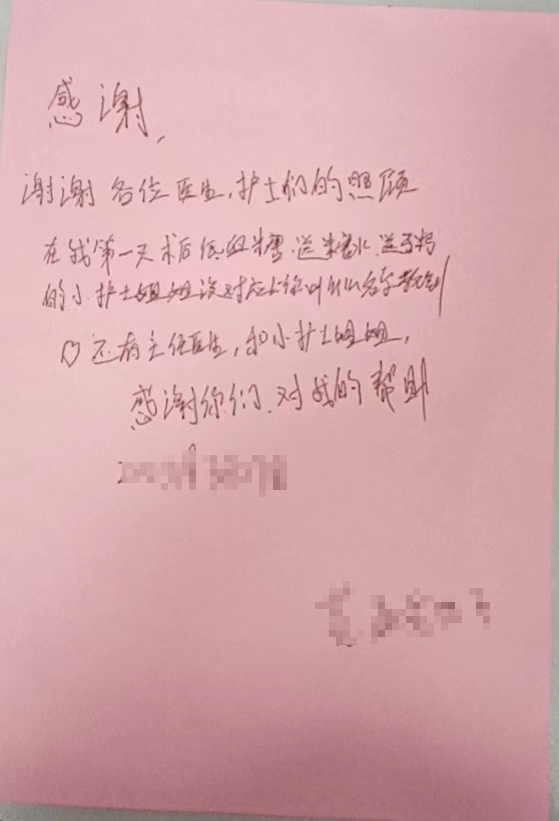 感谢,
谢谢各位医生,护士们的照顾
在我第一天术后低血糖,送糖水,送了粥
的小护士姐姐没对应上你叫什么名字
♡还有主任医生,和小护士姐姐,
感谢你们,对我的帮助